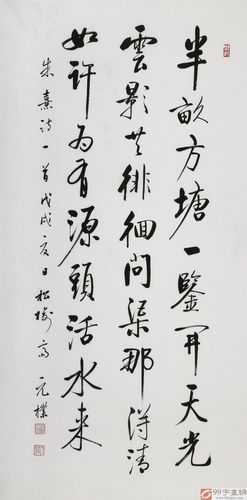 半畝方塘一鑒开天光
雲影共徘徊问渠那得清
如许为有源頭活水来
朱熹诗一首戊戌夏日松高元樸
99字画网